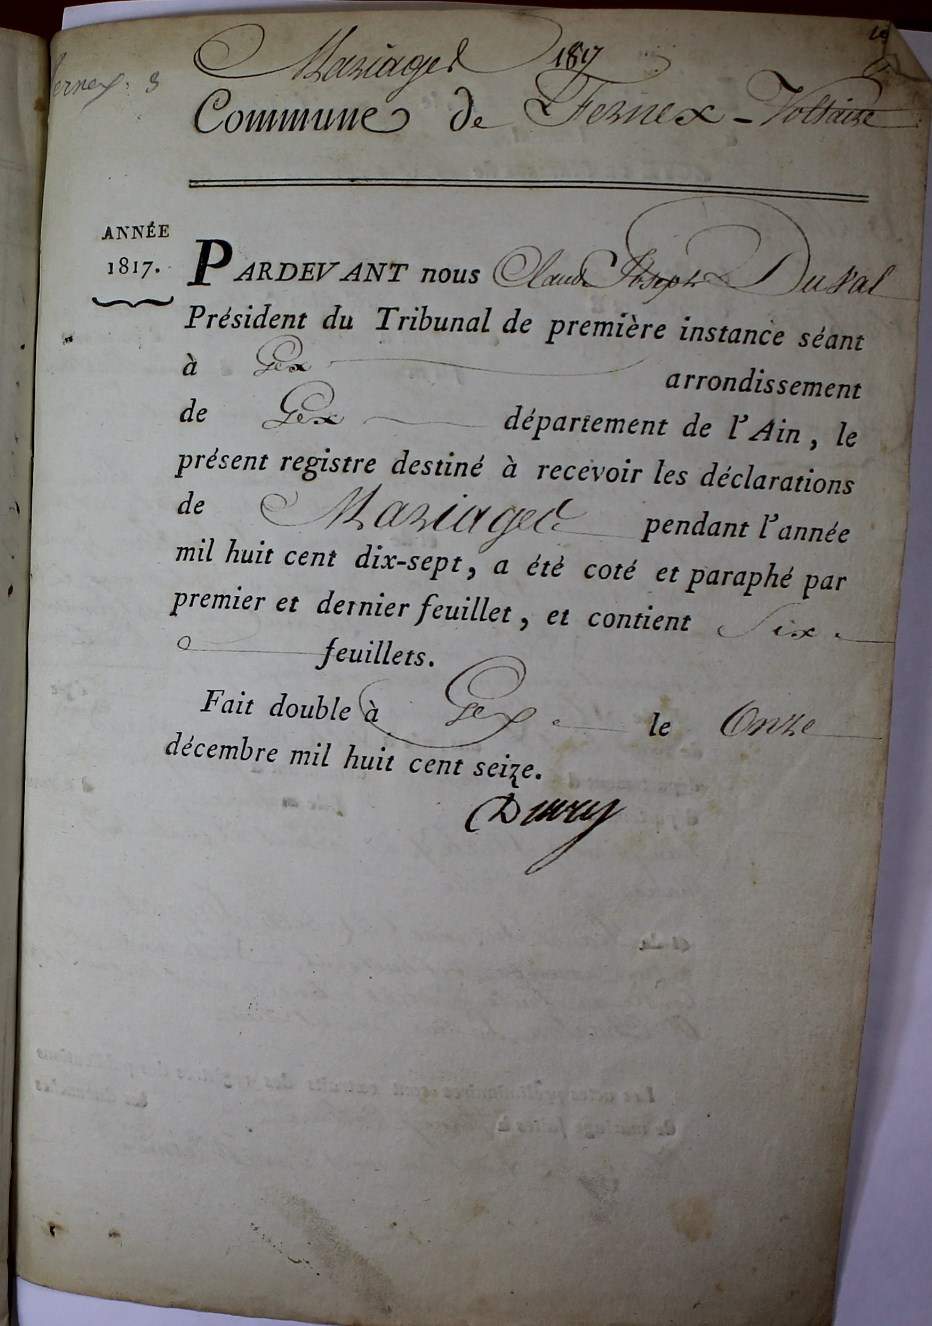 Mariages 1817
Commune de Fernex-Voltaire
ANNÉE
1817.
PARDEVANT nous Claude Joseph Duval
Président du Tribunal de première instance séant
à Gex arrondissement
de Gex département de l'Ain, le
présent registre destiné à recevoir les déclarations
de Mariages pendant l'année
mil huit cent dix-sept, a été coté et paraphé par
premier et dernier feuillet, et contient Six
feuillets.
Fait double à Gex le Onze
décembre mil huit cent seize.